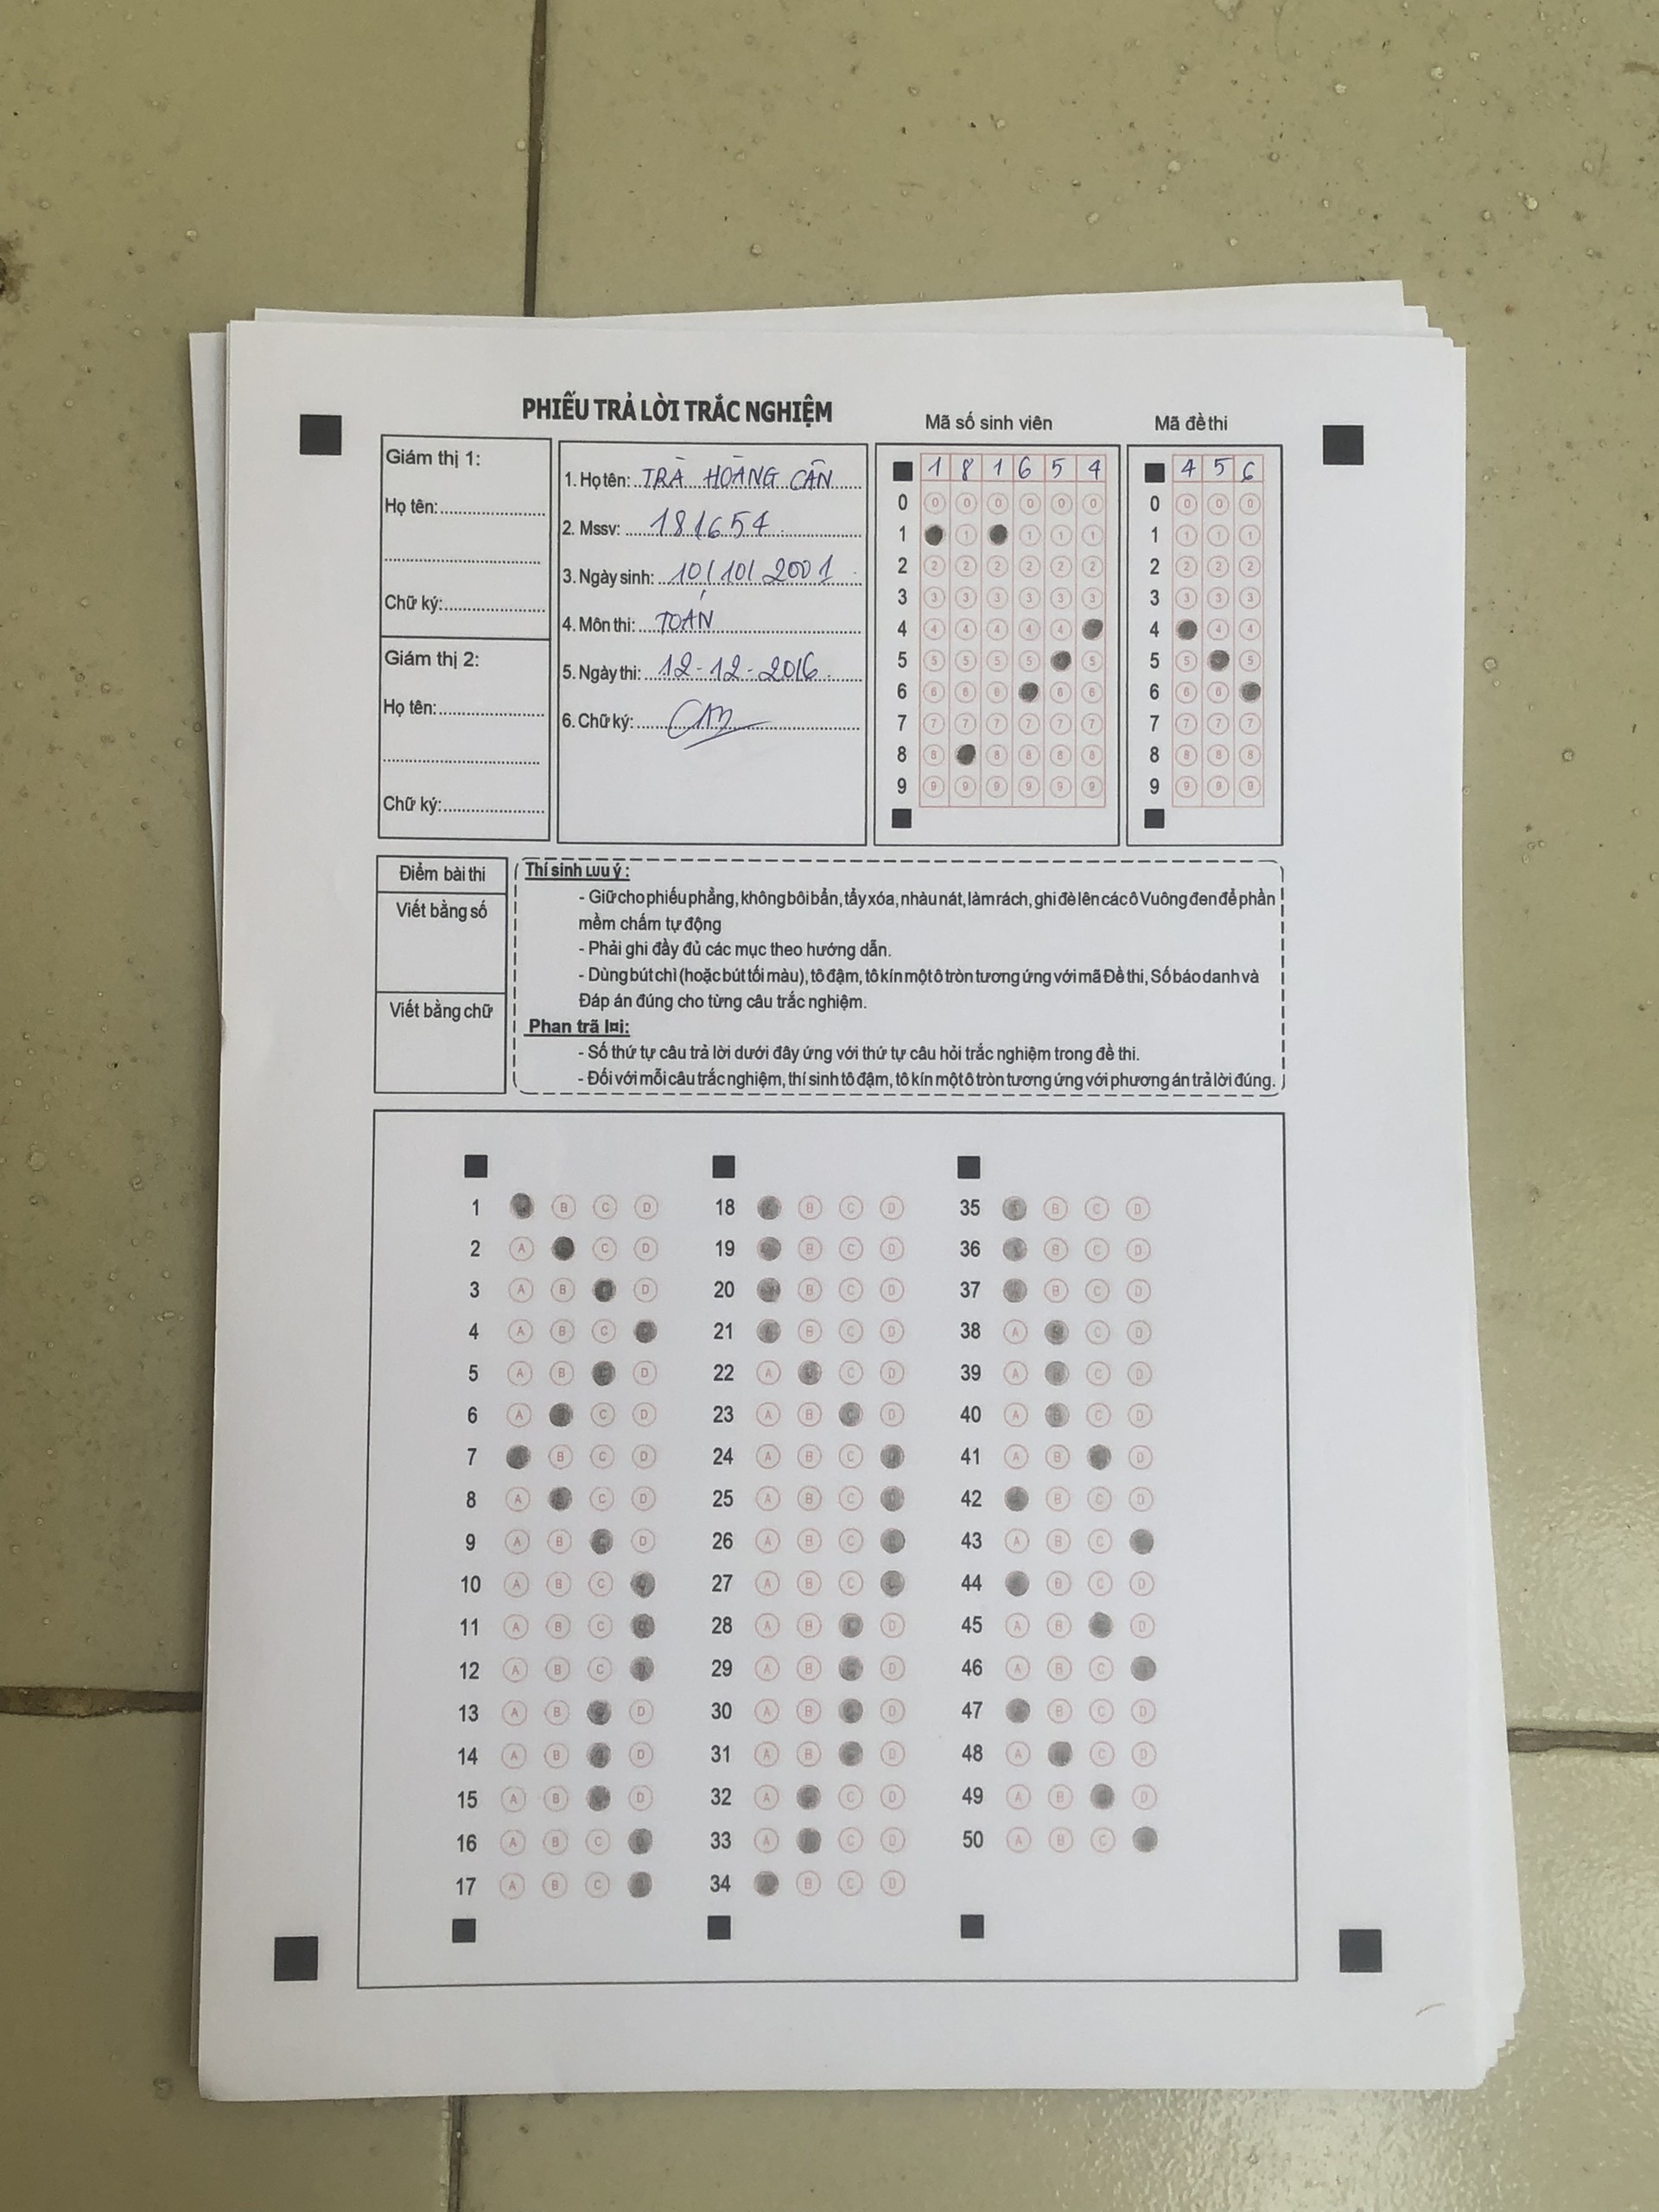 PHIẾU TRẢ LỜI TRẮC NGHIỆM
Mã số sinh viên
Mã đề thi
Giám thị 1:
Họ tên:
Chữ ký:
Giám thị 2:
Họ tên:
Chữ ký:
1. Họ tên: TRÀ HOÀNG CÂN
2. Mssv: 181654
3. Ngày sinh: 10/10/2001
4. Môn thi: TOÁN
5. Ngày thi: 12-12-2016
6. Chữ ký:
1 8 1 6 5 4
0 0 0 0 0 0 0
1 1 1 1 1
2 2 2 2 2 2 2
3 3 3 3 3 3 3
4 4 4 4 4 4
5 5 5 5 5 5
6 6 6 6 6 6
7 7 7 7 7 7 7
8 8 8 8 8 8
9 9 9 9 9 9 9
4 5 6
0 0 0 0
1 1 1 1
2 2 2 2
3 3 3 3
4 4 4
5 5 5
6 6 6
7 7 7 7
8 8 8 8
9 9 9 9
Điểm bài thi
Viết bằng số
Viết bằng chữ
Thí sinh Lưu ý:
- Giữ cho phiếu phẳng, không bôi bẩn, tẩy xóa, nhàu nát, làm rách, ghi đè lên các ô Vuông đen để phần
mềm chấm tự động
- Phải ghi đầy đủ các mục theo hướng dẫn.
- Dùng bút chì (hoặc bút tối màu), tô đậm, tô kín một ô tròn tương ứng với mã Đề thi, Số báo danh và
Đáp án đúng cho từng câu trắc nghiệm.
Phan trã l¤i:
- Số thứ tự câu trả lời dưới đây ứng với thứ tự câu hỏi trắc nghiệm trong đề thi.
- Đối với mỗi câu trắc nghiệm, thí sinh tô đậm, tô kín một ô tròn tương ứng với phương án trả lời đúng.
1 B C D
2 A C D
3 A B D
4 A B C
5 A B D
6 A C D
7 B C D
8 A C D
9 A B D
10 A B C
11 A B C
12 A B C
13 A B D
14 A B D
15 A B D
16 A B C
17 A B C
18 B C D
19 B C D
20 B C D
21 B C D
22 A C D
23 A B D
24 A B C
25 A B C
26 A B C
27 A B C
28 A B D
29 A B D
30 A B D
31 A B D
32 A C D
33 A C D
34 B C D
35 B C D
36 B C D
37 B C D
38 A C D
39 A C D
40 A C D
41 A B D
42 B C D
43 A B C
44 B C D
45 A B D
46 A B C
47 B C D
48 A C D
49 A B D
50 A B C